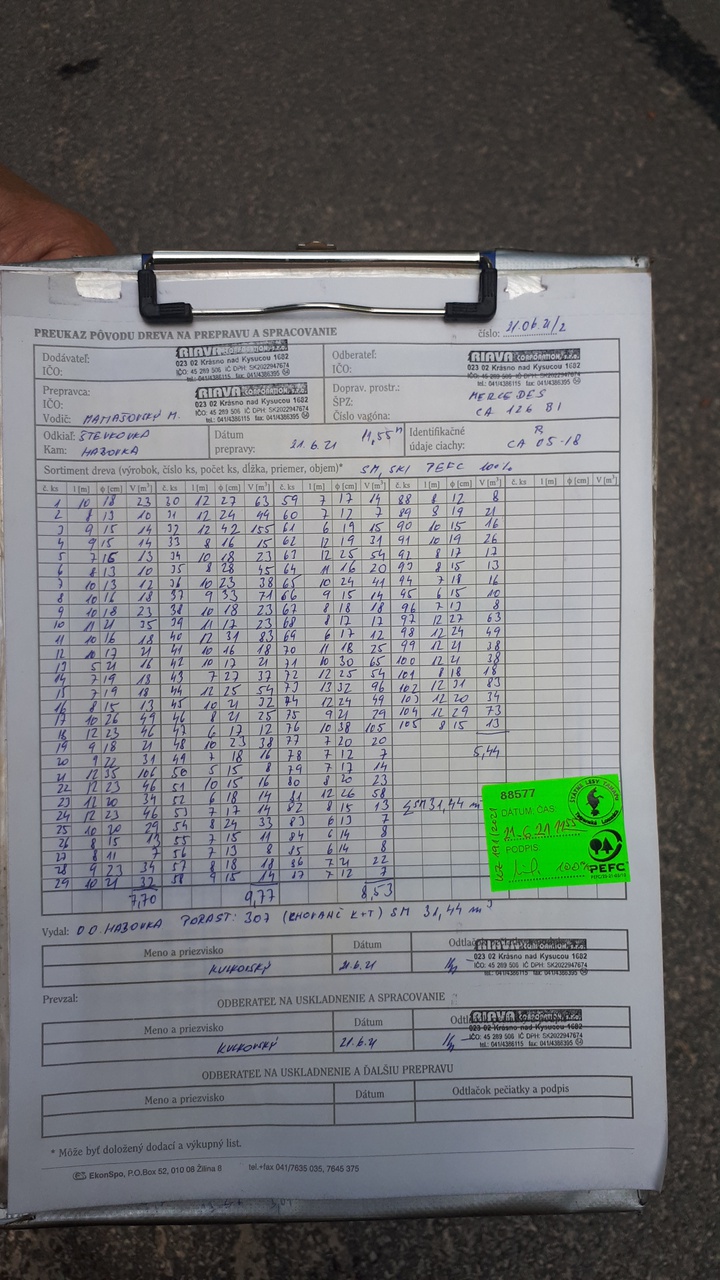 PREUKAZ PÔVODU DREVA NA PREPRAVU A SPRACOVANIE
číslo: 21.06.21/2
Dodávateľ:
IČO:
RIAVA CORPORATION, s.r.o.
023 02 Krásno nad Kysucou 1682
IČO: 45 289 506 IČ DPH: SK2022947674
tel.: 041/4386115 fax: 041/4386395
Odberateľ:
IČO:
RIAVA CORPORATION, s.r.o.
023 02 Krásno nad Kysucou 1682
IČO: 45 289 506 IČ DPH: SK2022947674
tel.: 041/4386115 fax: 041/4386395
Prepravca:
IČO:
Vodič: MAMAJOVSKÝ M.
RIAVA CORPORATION, s.r.o.
023 02 Krásno nad Kysucou 1682
IČO: 45 289 506 IČ DPH: SK2022947674
tel.: 041/4386115 fax: 041/4386395
Doprav. prostr.: MERCEDES
ŠPZ: CA 126 BI
Číslo vagóna:
Odkiaľ: ŠTEVKOVKA
Kam: HAZOVKA
Dátum
prepravy: 21.6.21 11,55 H
Identifikačné
údaje ciachy:
R
CA 05-18
Sortiment dreva (výrobok, číslo ks, počet ks, dĺžka, priemer, objem)* SM, SKI PEFC 100%
č. ks l [m] φ [cm] V [m³] č. ks l [m] φ [cm] V [m³] č. ks l [m] φ [cm] V [m³] č. ks l [m] φ [cm] V [m³] č. ks l [m] φ [cm] V [m³]
1 10 18 23 30 12 27 63 59 7 17 14 88 8 12 8
2 8 13 10 31 12 24 49 60 7 12 7 89 8 19 21
3 9 15 14 32 12 42 155 61 6 19 15 90 10 15 16
4 9 15 14 33 8 16 15 62 12 19 31 91 10 19 26
5 7 16 13 34 10 18 23 63 12 25 54 92 8 17 17
6 8 13 10 35 8 28 45 64 11 16 20 93 8 15 13
7 10 13 12 36 10 23 38 65 10 24 41 94 7 18 16
8 10 16 18 37 9 33 71 66 9 15 14 95 6 15 10
9 10 18 23 38 10 18 23 67 8 18 18 96 7 13 8
10 11 21 35 39 11 17 23 68 8 17 17 97 12 27 63
11 10 16 18 40 12 31 83 69 6 17 12 98 12 24 49
12 10 17 21 41 10 16 18 70 11 18 25 99 12 21 38
13 5 21 16 42 10 17 21 71 10 30 65 100 12 21 38
14 7 19 18 43 7 27 37 72 12 25 54 101 8 18 18
15 7 19 18 44 12 25 54 73 13 32 96 102 12 31 83
16 8 15 13 45 10 21 32 74 12 24 49 103 12 20 34
17 10 26 49 46 8 21 25 75 9 21 29 104 12 29 73
18 12 23 46 47 6 17 12 76 10 38 105 105 8 15 13
19 9 18 21 48 10 23 38 77 7 20 20
20 9 22 31 49 7 18 16 78 7 12 7 5,44
21 12 35 106 50 5 15 8 79 7 13 14
22 12 23 46 51 10 15 16 80 8 20 23
23 12 20 34 52 6 18 14 81 12 26 58
24 12 23 46 53 7 17 14 82 8 15 13 Σ SM 31,44 m³
25 10 20 29 54 8 24 33 83 6 13 7
26 8 15 13 55 7 15 11 84 6 14 8
27 8 11 7 56 7 13 8 85 6 14 8
28 9 23 34 57 8 18 18 86 7 21 22
29 10 21 32 58 9 15 14 87 7 12 7
7,70 9,77 8,53
88577
DÁTUM: ČAS:
21.6.21 1155
PODPIS:
100%
PEFC
Vydal: OO HAZOVKA PORAST: 307 (CHOVANÉ K+T) SM 31,44 m³
Meno a priezvisko Dátum
KULKOVSKÝ 21.6.21
RIAVA CORPORATION, s.r.o.
023 02 Krásno nad Kysucou 1682
IČO: 45 289 506 IČ DPH: SK2022947674
tel.: 041/4386115 fax: 041/4386395
Prevzal:
ODBERATEĽ NA USKLADNENIE A SPRACOVANIE
Meno a priezvisko Dátum
KULKOVSKÝ 21.6.21
RIAVA CORPORATION, s.r.o.
023 02 Krásno nad Kysucou 1682
IČO: 45 289 506 IČ DPH: SK2022947674
tel.: 041/4386115 fax: 041/4386395
ODBERATEĽ NA USKLADNENIE A ĎALŠIU PREPRAVU
Meno a priezvisko Dátum Odtlačok pečiatky a podpis
* Môže byť doložený dodací a výkupný list.
EkonSpo, P.O.Box 52, 010 08 Žilina 8 tel.+fax 041/7635 035, 7645 375